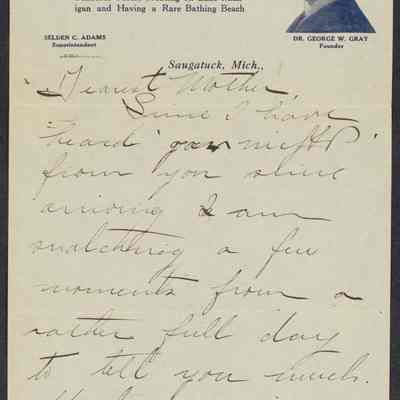 igan and Having a Rare Bathing Beach
SELDEN C. ADAMS
Superintendent
DR. GEORGE W. GRAY
Founder
Saugatuck, Mich.,
Dearest Mother,
Since I have
heard
from you since
arriving I am
snatching a few
moments from a
rather full day
to tell you much.